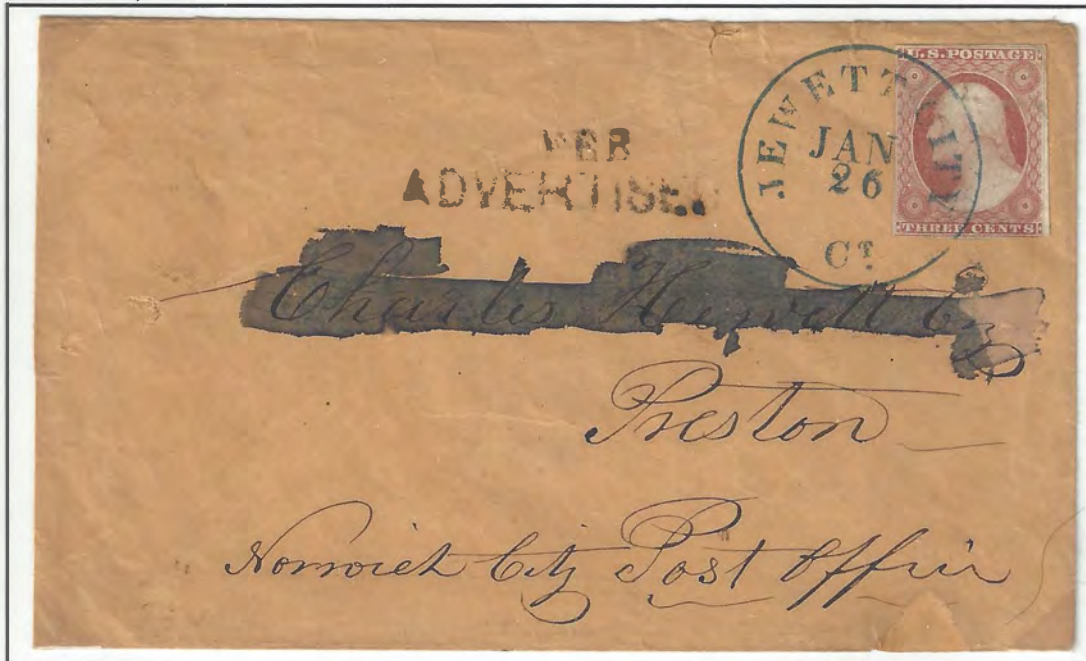 U.S. POSTAGE
THREE CENTS
JEWETT CITY
JAN
26
CT.
FEB
ADVERTISED
Charles Hewitt Esq
Preston
Norwich City Post Office